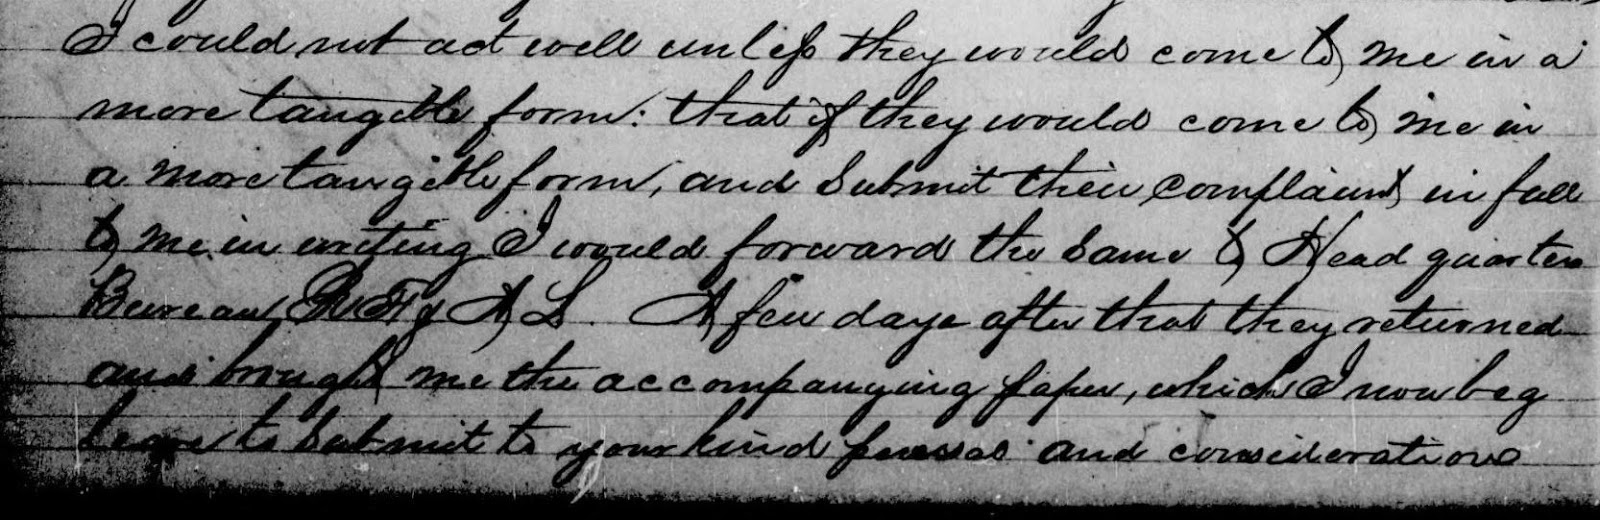 I could not act well unless they would come to me in a
more tangible form: that if they would come to me in
a more tangible form, and submit their complaint in full
to me in writing I would forward the same to Head quarters
Bureau R F & A L. A few days after that they returned
and brought me the accompanying paper, which I now beg
leave to submit to your kind perusal and consideration